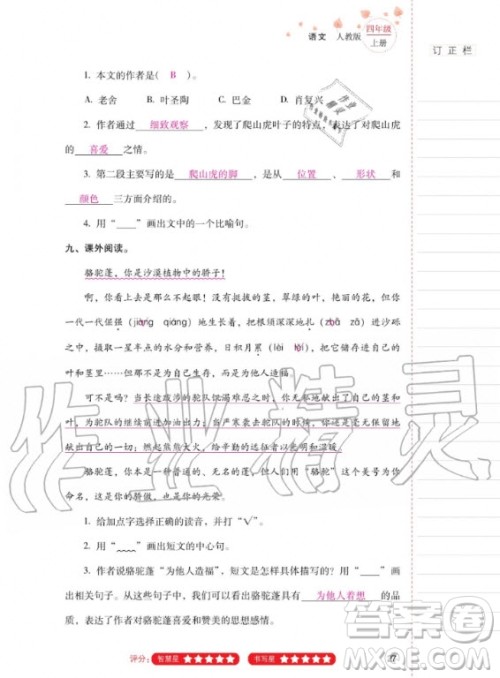 语文 人教版 四年级上册
订正栏
1. 本文的作者是( B )。
A. 老舍 B. 叶圣陶 C. 巴金 D. 肖复兴
2. 作者通过 细致观察 ,发现了爬山虎叶子的特点,表达了对爬山虎
的 喜爱 之情。
3. 第二段主要写的是 爬山虎的脚 ,是从 位置 、 形状 和
颜色 三方面介绍的。
4. 用“____”画出文中的一个比喻句。
九、课外阅读。
骆驼蓬,你是沙漠植物中的骄子!
啊,你看上去是那么不起眼!没有挺拔的茎,翠绿的叶,艳丽的花,但你
一代一代倔强(jiàng qiáng)地生长着,把根须深深地扎(zhā zā)进沙砾
之中,吸取一星半点的水分和营养,日积月累(lěi lèi),把它储存进自己的
叶和茎里……但你不是为自己生存,而是为他人造福。
可不是吗?当长途跋涉的驼队饥渴难忍之时,你无私地献出了自己的茎和
叶,为驼队的继续前进加油出力;当严寒袭击疲惫的驼队时,你又毫无保留地
献出自己的一切:燃起熊熊大火,给辛勤的远行者以光明和温暖……
骆驼蓬,你本是一种普通的、无名的蓬,但人们用“骆驼”这个美号为你
命名,这是你的骄傲,也是你的光荣。
1. 给加点字选择正确的读音,并打“√”。
2. 用“﹏﹏”画出短文的中心句。
3. 作者说骆驼蓬“为他人造福”,短文是怎么具体写的?用“____”画
出相关句子。从这些句子中,我们可以看出骆驼蓬具有 为他人着想 的品
质,表达了作者对骆驼蓬喜爱和赞美的思想感情。
评分: 智慧星 ★★★★★ 书写星 ★★★★★
37
作业精灵
答案圈